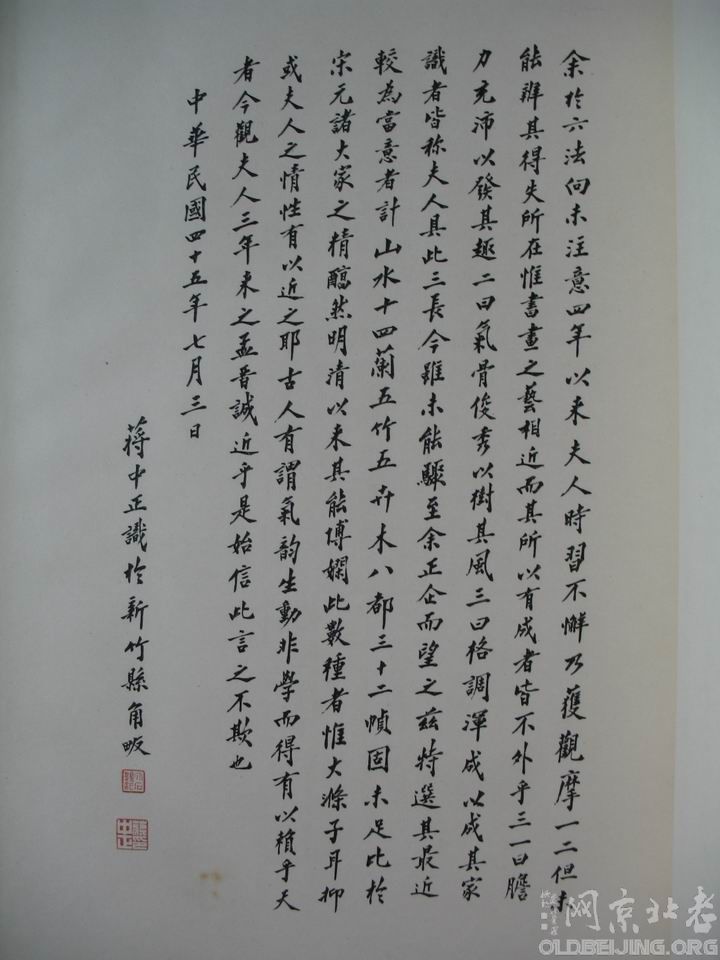 余於六法向未注意四年以來夫人時習不懈乃獲觀摩一二但未
能辨其得失所在惟書畫之藝相近而其所以有成者皆不外乎三一曰膽
力充沛以發其趣二曰氣骨俊秀以樹其風三曰格調渾成以成其家
識者皆称夫人具此三長今雖未能驟至余正企而望之茲特選其最近
較為當意者計山水十四蘭五竹五卉木八都三十二幀固未足比於
宋元諸大家之精醕然明清以來其能博嫻此數種者惟大滌子耳抑
或夫人之情性有以近之耶古人有謂氣韵生動非學而得有以賴乎天
者今觀夫人三年來之孟晋誠近乎是始信此言之不欺也
中華民國四十五年七月三日
蔣中正識於新竹縣角畈
老北京网
OLDBEIJING.ORG